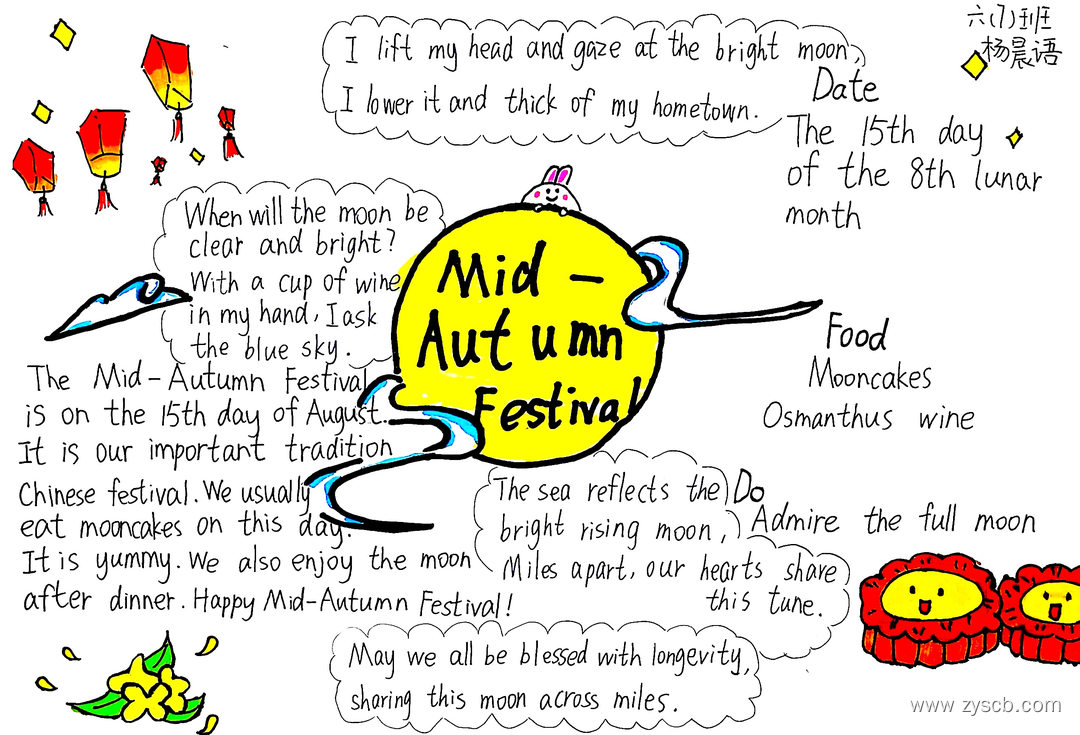 I lift my head and gaze at the bright moon,
I lower it and thick of my hometown.
六(7)班
杨晨语
Date
The 15th day
of the 8th lunar
month
When will the moon be
clear and bright?
With a cup of wine
in my hand, I ask
the blue sky.
Mid-
Autumn
Festival
Food
Mooncakes
Osmanthus wine
The Mid-Autumn Festival
is on the 15th day of August.
It is our important tradition
Chinese festival. We usually
eat mooncakes on this day.
It is yummy. We also enjoy the moon
after dinner. Happy Mid-Autumn Festival!
The sea reflects the
bright rising moon,
Miles apart, our hearts share
this tune.
Do
Admire the full moon
May we all be blessed with longevity,
sharing this moon across miles.
www.zyscb.com